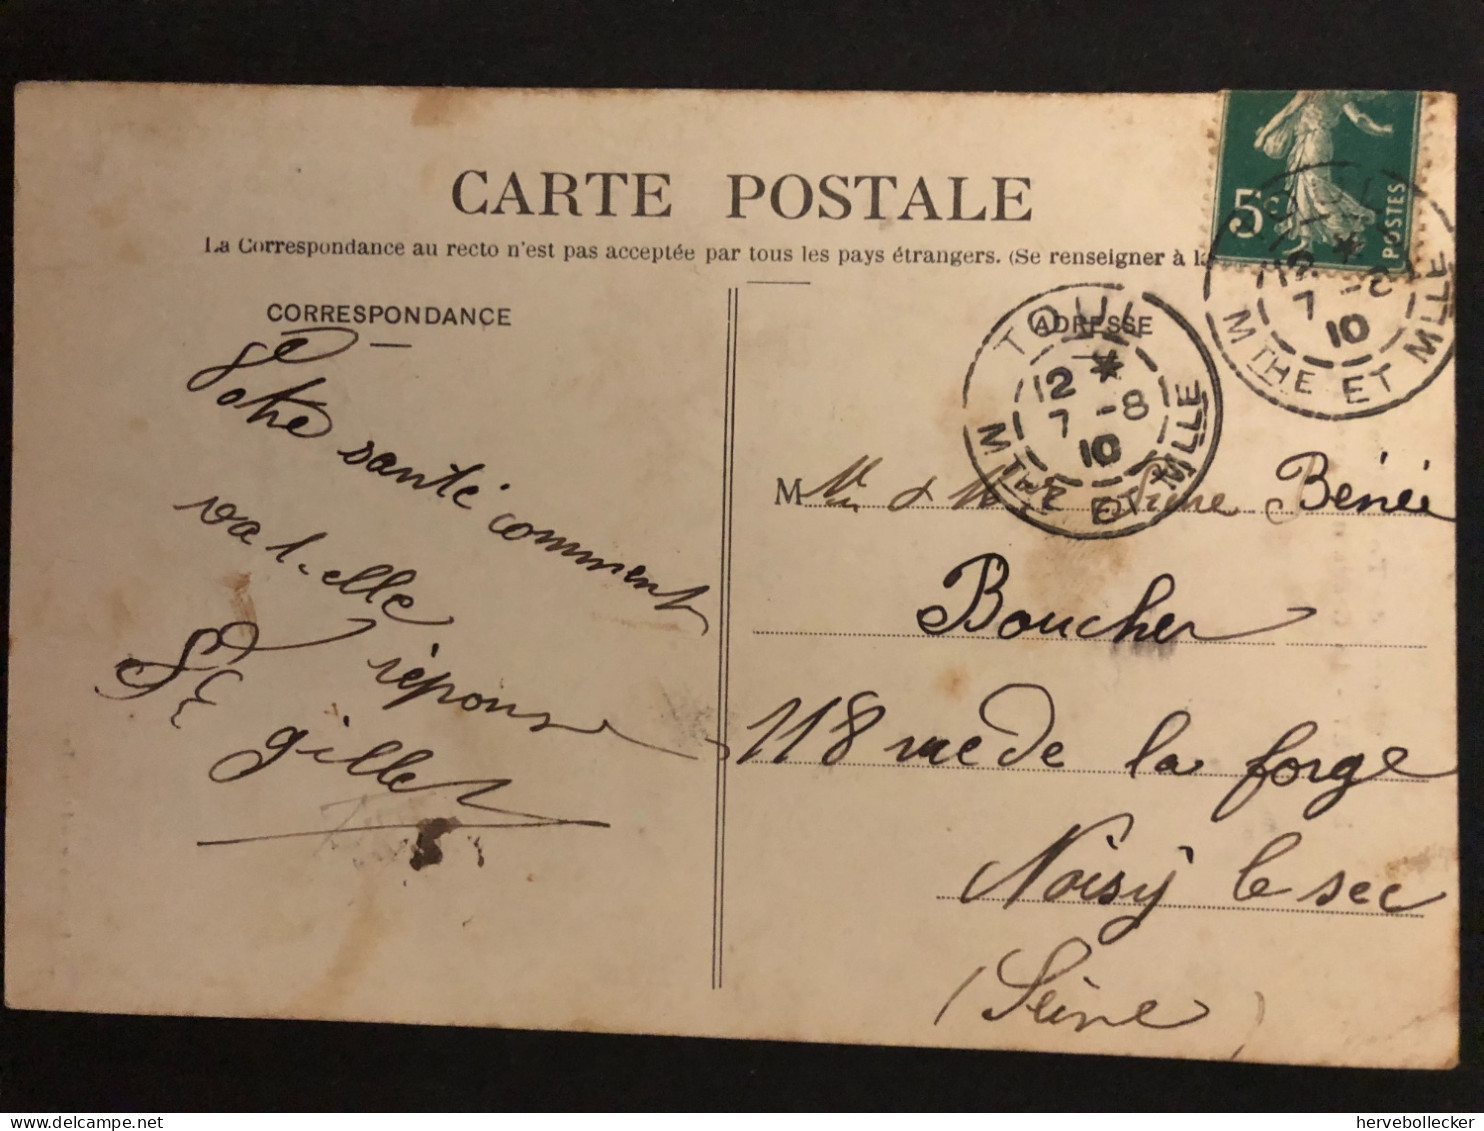 CARTE POSTALE
La Correspondance au recto n'est pas acceptée par tous les pays étrangers. (Se renseigner à la
CORRESPONDANCE
ADRESSE
5c POSTES
TOUL
12 *
7 -8
10
MTHE ET MLLE
12 *
7 -8
10
MTHE ET MLLE
santé comment
va t-elle
réponse
gillet
M
Bénéi
Boucher
118 rue de la forge
Noisy le sec
(Seine)
hervebollecker